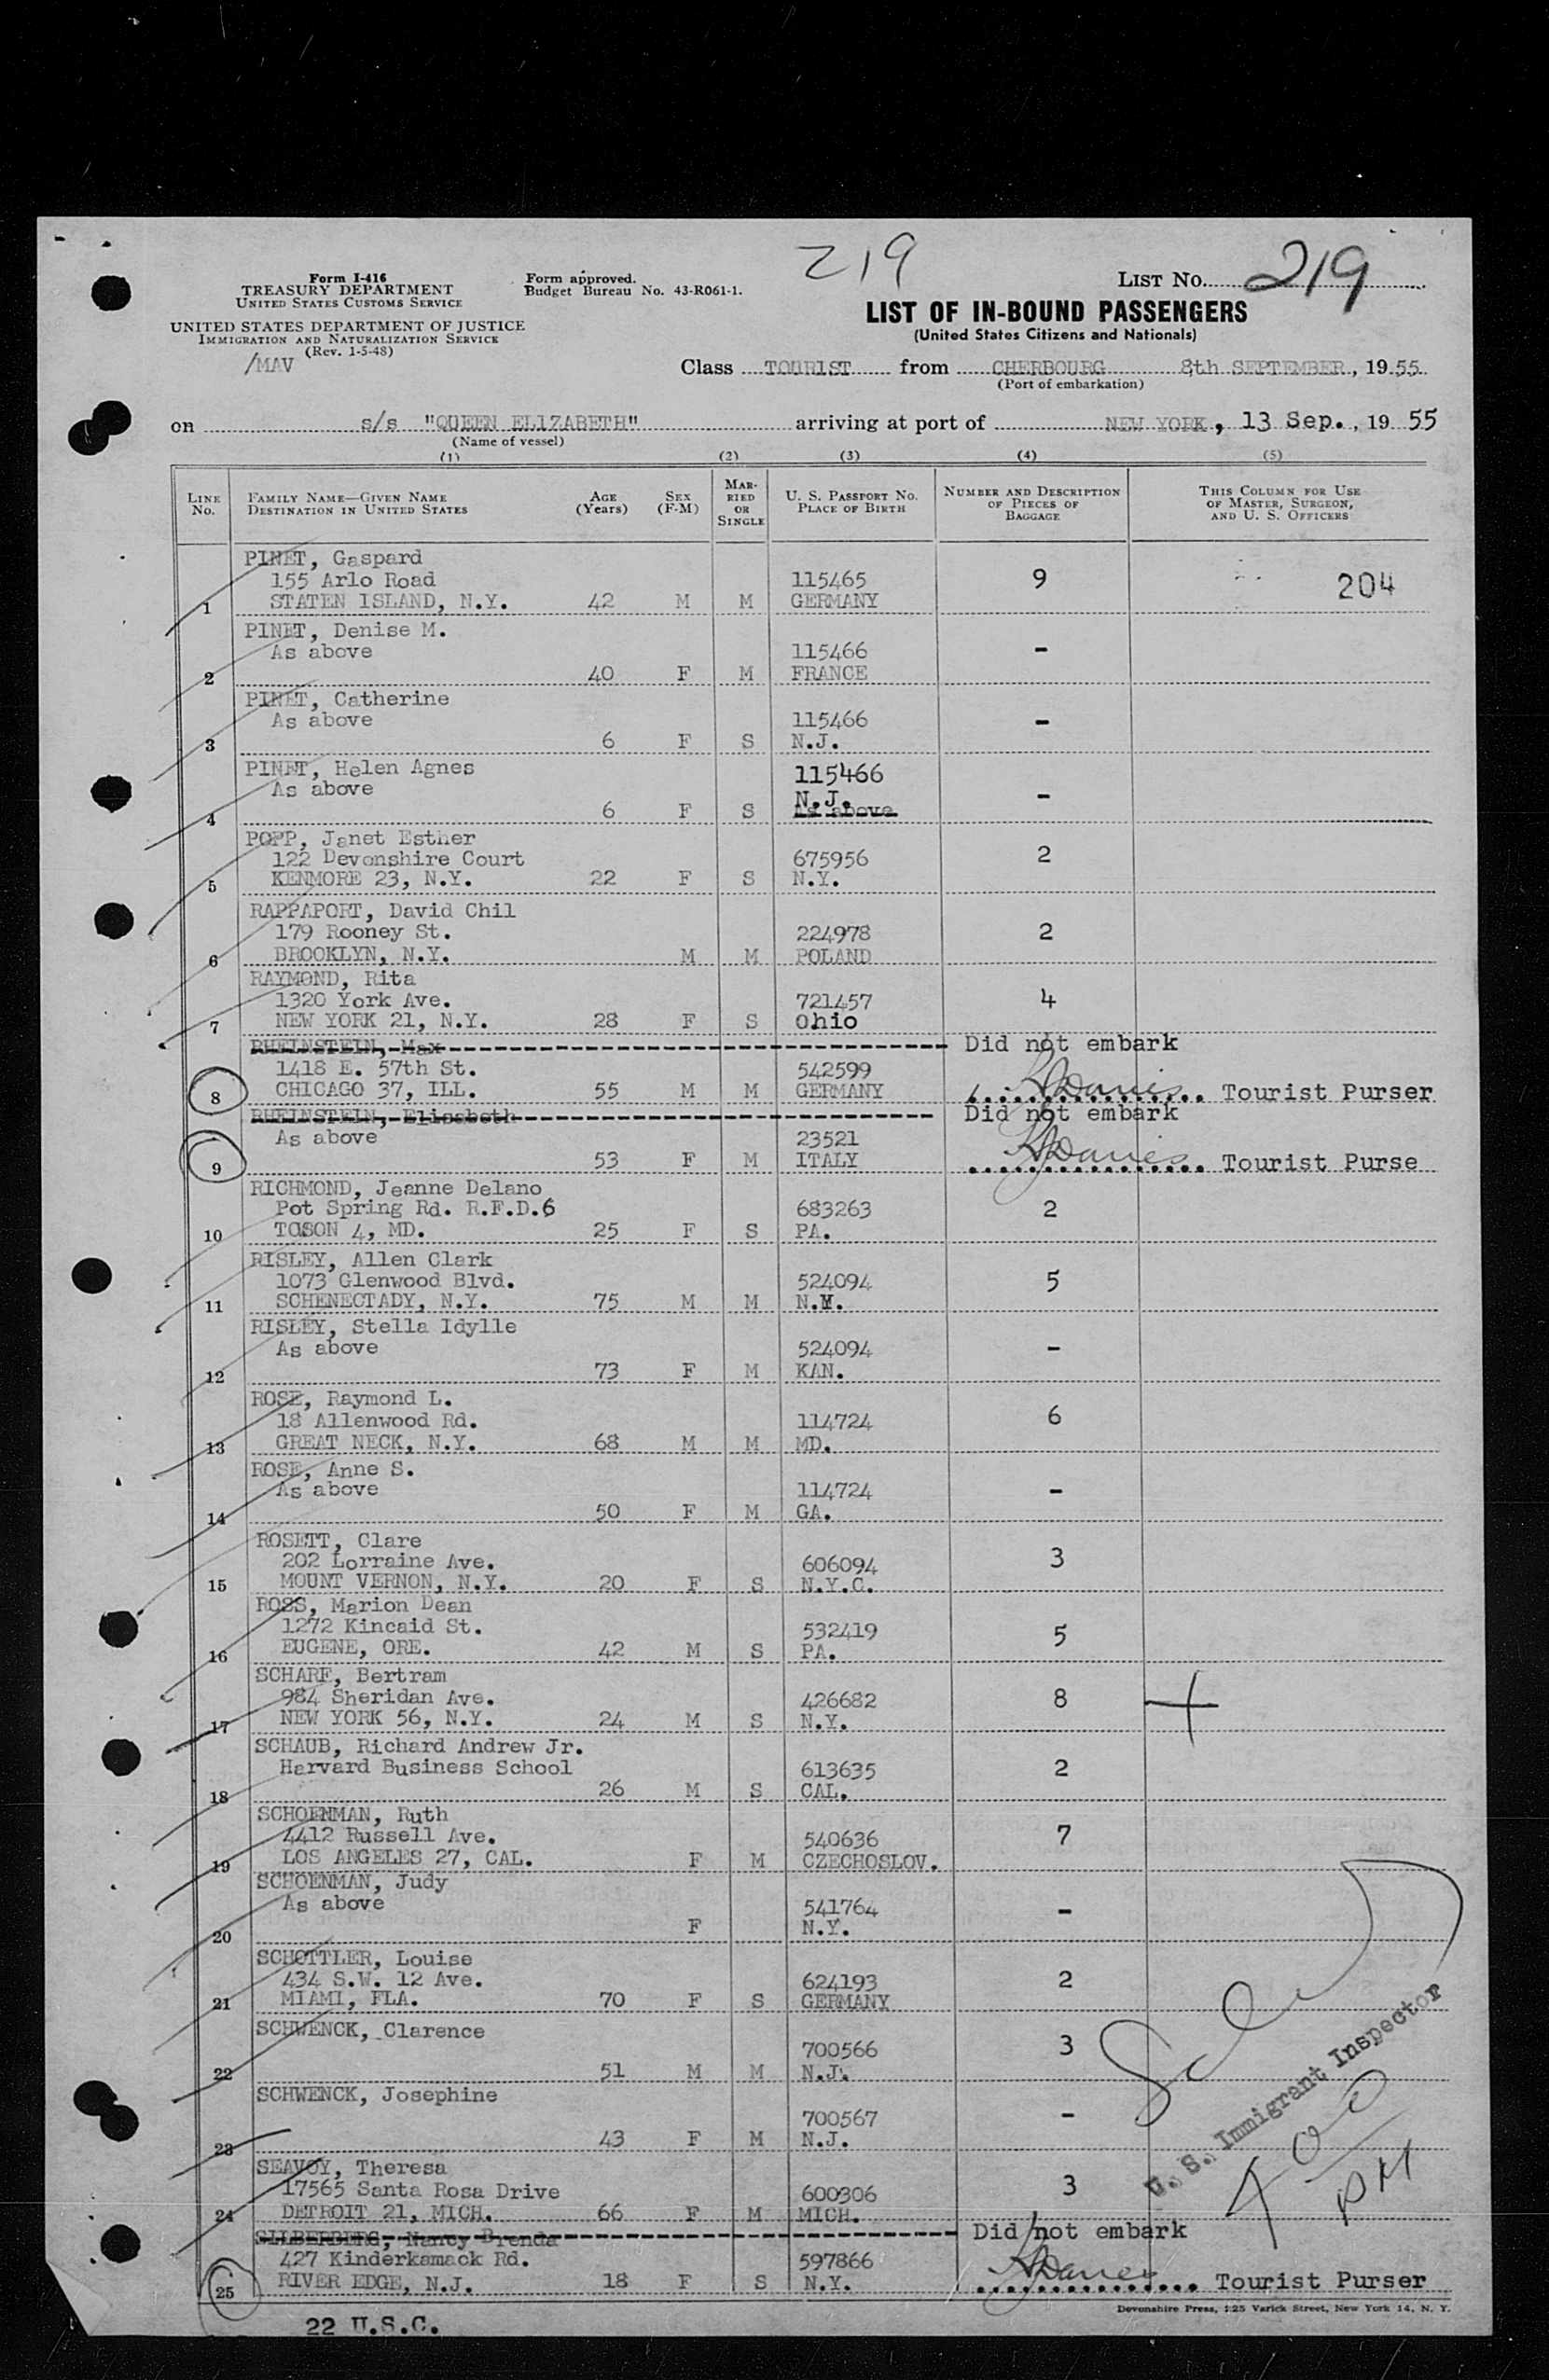 219
Form I-416
TREASURY DEPARTMENT
UNITED STATES CUSTOMS SERVICE
UNITED STATES DEPARTMENT OF JUSTICE
IMMIGRATION AND NATURALIZATION SERVICE
(Rev. 1-5-48)
/MAV
Form approved.
Budget Bureau No. 43-R061-1.
LIST No. 219
LIST OF IN-BOUND PASSENGERS
(United States Citizens and Nationals)
Class TOURIST from CHERBOURG 8th SEPTEMBER, 1955
(Port of embarkation)
on s/s "QUEEN ELIZABETH" arriving at port of NEW YORK, 13 Sep., 19 55
(Name of vessel)
(1) (2) (3) (4) (5)
LINE No. FAMILY NAME—GIVEN NAME DESTINATION IN UNITED STATES AGE (Years) SEX (F-M) MARRIED OR SINGLE U. S. PASSPORT No. PLACE OF BIRTH NUMBER AND DESCRIPTION OF PIECES OF BAGGAGE THIS COLUMN FOR USE OF MASTER, SURGEON, AND U. S. OFFICERS
PINET, Gaspard
155 Arlo Road 115465 9 204
1 STATEN ISLAND, N.Y. 42 M M GERMANY
PINET, Denise M.
As above 115466 -
2 40 F M FRANCE
PINET, Catherine
As above 115466 -
3 6 F S N.J.
PINET, Helen Agnes 115466
As above N.J. -
4 6 F S As above
POPP, Janet Esther
122 Devonshire Court 675956 2
5 KENMORE 23, N.Y. 22 F S N.Y.
RAPPAPORT, David Chil
179 Rooney St. 224978 2
6 BROOKLYN, N.Y. M M POLAND
RAYMOND, Rita
1320 York Ave. 721457 4
7 NEW YORK 21, N.Y. 28 F S Ohio
RHEINSTEIN, Max Did not embark
1418 E. 57th St. 542599
8 CHICAGO 37, ILL. 55 M M GERMANY Tourist Purser
RHEINSTEIN, Elisabeth Did not embark
As above 23521
9 53 F M ITALY Tourist Purse
RICHMOND, Jeanne Delano
Pot Spring Rd. R.F.D.6 683263 2
10 TOSON 4, MD. 25 F S PA.
RISLEY, Allen Clark
1073 Glenwood Blvd. 524094 5
11 SCHENECTADY, N.Y. 75 M M
RISLEY, Stella Idylle
As above 524094 -
12 73 F M KAN.
ROSE, Raymond L.
18 Allenwood Rd. 114724 6
13 GREAT NECK, N.Y. 68 M M MD.
ROSE, Anne S.
As above 114724 -
14 50 F M GA.
ROSETT, Clare
202 Lorraine Ave. 606094 3
15 MOUNT VERNON, N.Y. 20 F S N.Y.C.
ROSS, Marion Dean
1272 Kincaid St. 532419 5
16 EUGENE, ORE. 42 M S PA.
SCHARF, Bertram
984 Sheridan Ave. 426682 8
17 NEW YORK 56, N.Y. 24 M S N.Y.
SCHAUB, Richard Andrew Jr.
Harvard Business School 613635 2
18 26 M S CAL.
SCHOENMAN, Ruth
4412 Russell Ave. 540636 7
19 LOS ANGELES 27, CAL. F M CZECHOSLOV.
SCHOENMAN, Judy
As above 541764 -
20 F N.Y.
SCHOTTLER, Louise
434 S.W. 12 Ave. 624193 2
21 MIAMI, FLA. 70 F S GERMANY
SCHWENCK, Clarence
700566 3
22 51 M M N.J.
SCHWENCK, Josephine
700567 -
23 43 F M N.J.
U. S. Immigrant Inspector
SEAVOY, Theresa
17565 Santa Rosa Drive 600306 3
24 DETROIT 21, MICH. 66 F M MICH.
400 PM
SILBERBERG, Nancy Brenda Did not embark
427 Kinderkamack Rd. 597866
25 RIVER EDGE, N.J. 18 F S N.Y. Tourist Purser
Devonshire Press, 125 Varick Street, New York 14, N. Y.
22 U.S.C.